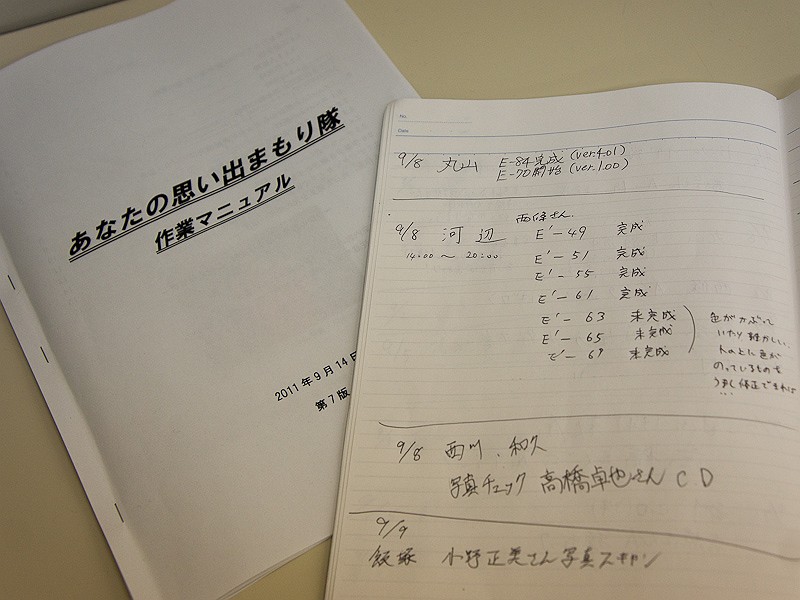 あなたの思い出まもり隊
作業マニュアル
2011年9月14日
第7版
No.
Date
9/8 丸山 E-84完成 (ver.4.01)
E-70開始 (ver.1.00)
西條さん
9/8 河辺 E'-49 完成
14:00 ～ 20:00 E'-51 完成
E'-55 完成
E'-61 完成
E'-63 未完成
E'-65 未完成
E'-69 未完成
色がかぶって
いたり難かしい。
人の上に色が
のっているものも
うまく修正できれば
...
9/8 西川. 和久
写真チェック 高橋卓也さん CD
9/9
飯塚 小野正美さん写真スキャン